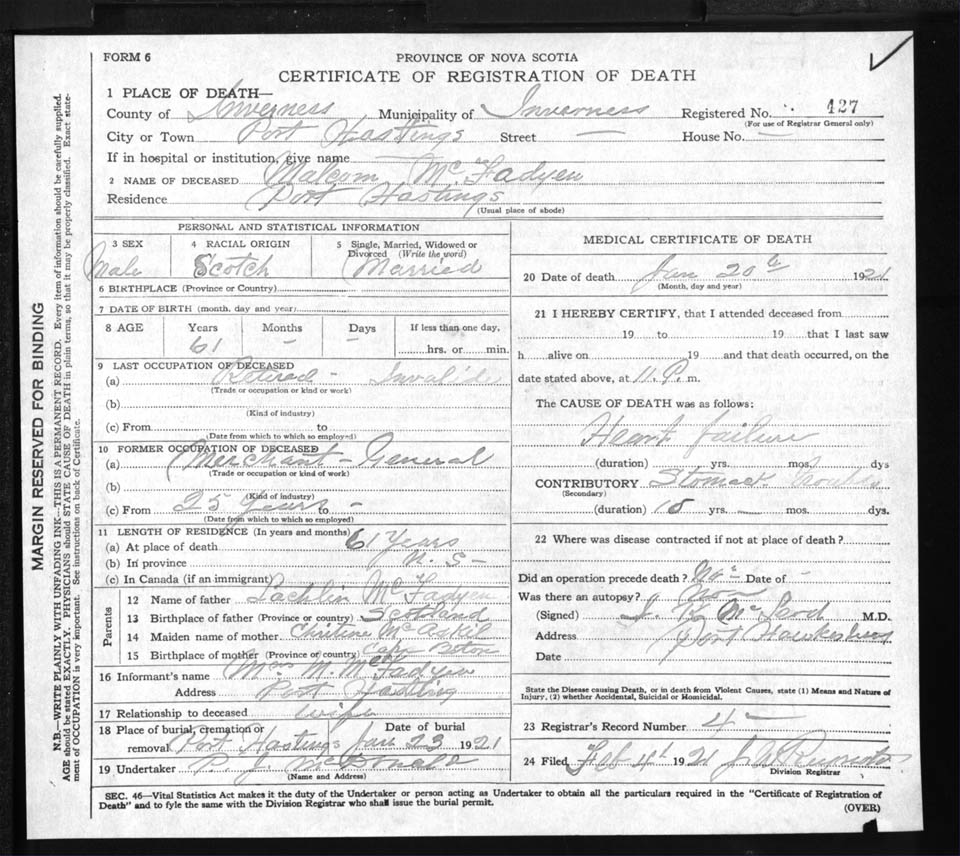 FORM 6
PROVINCE OF NOVA SCOTIA
CERTIFICATE OF REGISTRATION OF DEATH
1 PLACE OF DEATH—
County of Inverness Municipality of Inverness Registered No. 427
(For use of Registrar General only)
City or Town Port Hastings Street — House No. —
If in hospital or institution, give name
2 NAME OF DECEASED Malcom McFadyen
Residence Port Hastings
(Usual place of abode)
PERSONAL AND STATISTICAL INFORMATION
3 SEX Male
4 RACIAL ORIGIN Scotch
5 Single, Married, Widowed or Divorced (Write the word) Married
6 BIRTHPLACE (Province or Country)
7 DATE OF BIRTH (month, day and year)
8 AGE Years Months Days If less than one day,
61 – – hrs. or min.
9 LAST OCCUPATION OF DECEASED
(a) Retired - Invalid
(Trade or occupation or kind or work)
(b)
(Kind of industry)
(c) From to
(Date from which to which so employed)
10 FORMER OCCUPATION OF DECEASED
(a) Merchant - General
(Trade or occupation or kind of work)
(b)
(Kind of industry)
(c) From 25 years to -
(Date from which to which so employed)
11 LENGTH OF RESIDENCE (In years and months)
(a) At place of death 61 Years
(b) In province N. S -
(c) In Canada (if an immigrant)
Parents
12 Name of father Lachlin McFadyen
13 Birthplace of father (Province or country) Scotland
14 Maiden name of mother Christine McAskil
15 Birthplace of mother (Province or country) Cape Breton
16 Informant's name Mrs M McFadyen
Address Port Hasting
17 Relationship to deceased wife
18 Place of burial, cremation or removal Port Hastings Date of burial Jan 23 1921
19 Undertaker P. J. McDonald
(Name and Address)
MEDICAL CERTIFICATE OF DEATH
20 Date of death Jan 20th 1921
(Month, day and year)
21 I HEREBY CERTIFY, that I attended deceased from
19 to 19 that I last saw
h alive on 19 and that death occurred, on the
date stated above, at 11.P.m.
The CAUSE OF DEATH was as follows:
Heart failure
(duration) yrs. mos. dys
CONTRIBUTORY Stomach trouble
(Secondary)
(duration) 15 yrs. — mos. dys.
22 Where was disease contracted if not at place of death?
Did an operation precede death? No - Date of -
Was there an autopsy?
(Signed) McLeod M.D.
Address Port Hawkesbury
Date
State the Disease causing Death, or in death from Violent Causes, state (1) Means and Nature of
Injury, (2) whether Accidental, Suicidal or Homicidal.
23 Registrar's Record Number 4 -
24 Filed Feb 4th 1921
Division Registrar
SEC. 46—Vital Statistics Act makes it the duty of the Undertaker or person acting as Undertaker to obtain all the particulars required in the "Certificate of Registration of
Death" and to fyle the same with the Division Registrar who shall issue the burial permit.
(OVER)
MARGIN RESERVED FOR BINDING
N.B.—WRITE PLAINLY WITH UNFADING INK—THIS IS A PERMANENT RECORD. Every item of information should be carefully supplied.
AGE should be stated EXACTLY. PHYSICIANS should STATE CAUSE OF DEATH in plain terms, so that it may be properly classified. Exact state-
ment of OCCUPATION is very important. See instructions on back of Certificate.